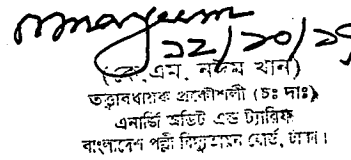 ১২/১০/১৭
(কে.এম. নঈম খান)
তত্ত্বাবধায়ক প্রকৌশলী (চঃ দাঃ)
এনার্জি অডিট এন্ড ট্যারিফ
বাংলাদেশ পল্লী বিদ্যুতায়ন বোর্ড, ঢাকা।